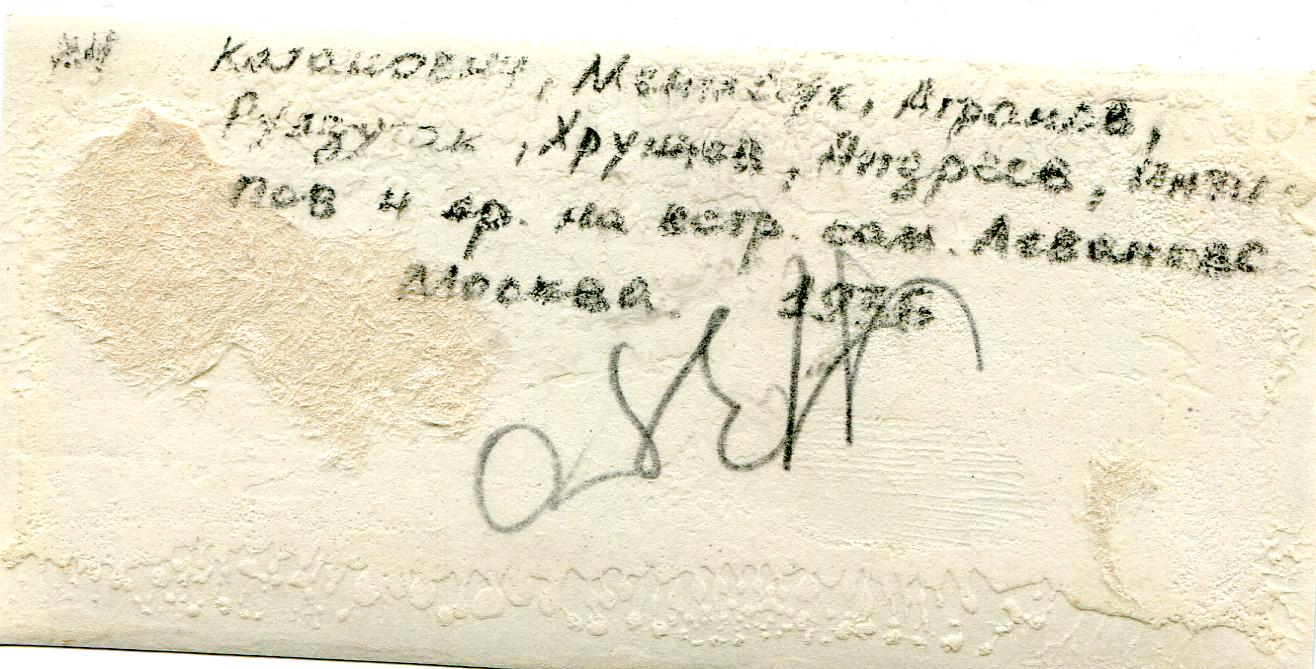 Каганович, Межлаук, Агранов,
Рудзутак, Хрущев, Андреев, Анти-
пов и др. на встр. сам. Леваневс
Москва. 1936